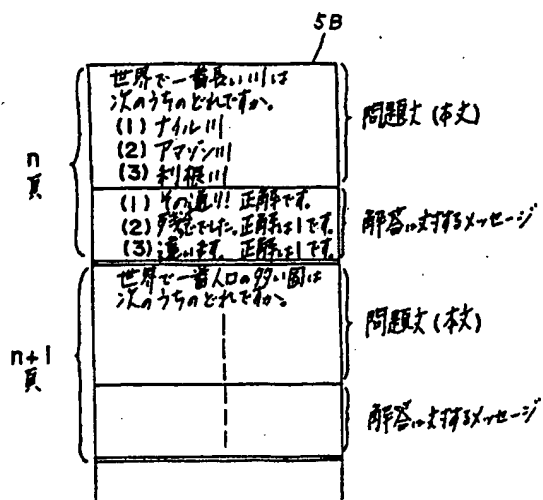 5B
世界で一番長い川は
次のうちのどれですか。
(1) ナイル川
(2) アマゾン川
(3) 利根川
問題文(本文)
n
頁
(1) その通り! 正解です。
(2) 残念でした。正解は1です。
(3) 違います。 正解は1です。
解答に対するメッセージ
世界で一番人口の多い国は
次のうちのどれですか。
問題文(本文)
n+1
頁
解答に対するメッセージ